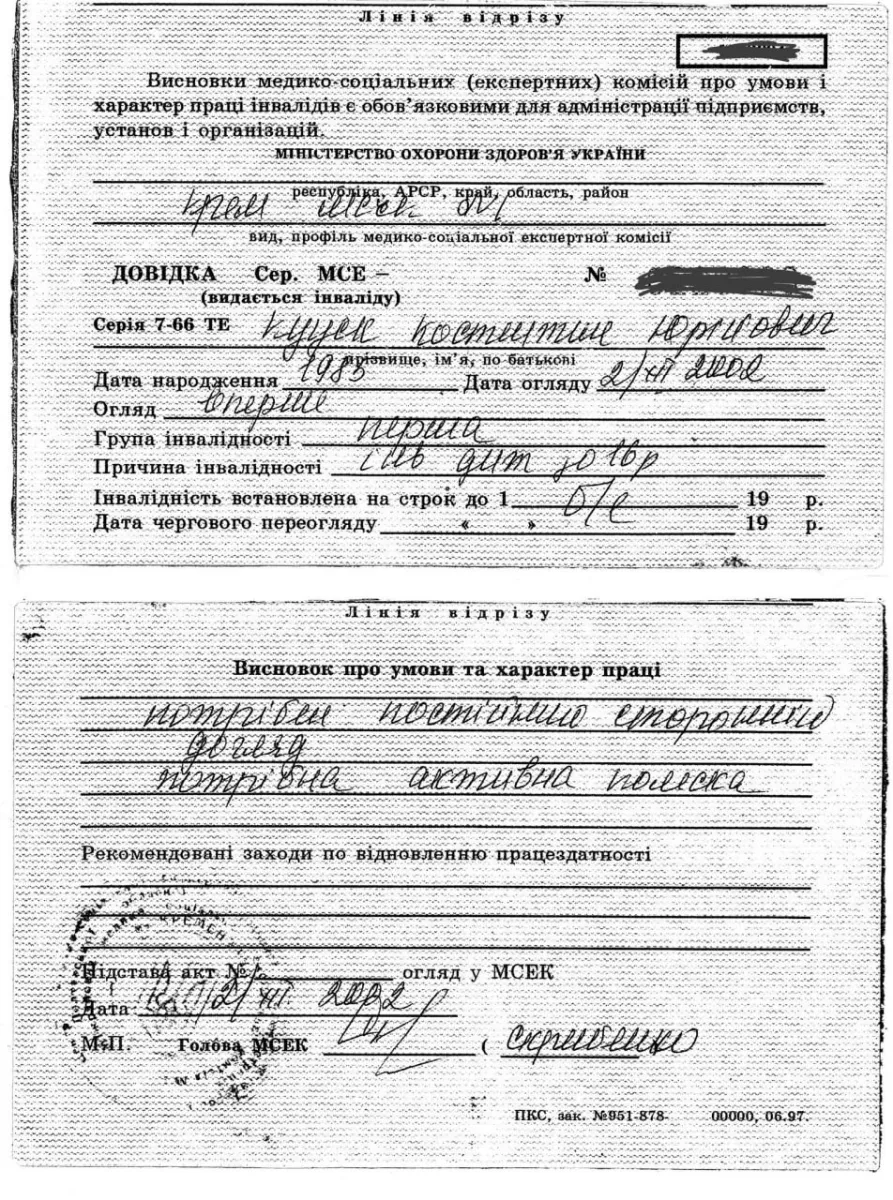 Лінія відрізу
Висновки медико-соціальних (експертних) комісій про умови і
характер праці інвалідів є обов'язковими для адміністрації підприємств,
установ і організацій.
МІНІСТЕРСТВО ОХОРОНИ ЗДОРОВ'Я УКРАЇНИ
республіка, АРСР, край, область, район
Крем МСЕК №1
вид, профіль медико-соціальної експертної комісії
ДОВІДКА Сер. МСЕ — №
(видається інваліду)
Серія 7-66 ТЕ Костянтин Юрійович
прізвище, ім'я, по батькові
Дата народження 1985 Дата огляду 2/XII 2002
Огляд вперше
Група інвалідності перша
Причина інвалідності інв дит до 16р
Інвалідність встановлена на строк до 1 б/с 19 р.
Дата чергового переогляду « » 19 р.
Лінія відрізу
Висновок про умови та характер праці
потрібен постійний сторонній
догляд
потрібна активна коляска
Рекомендовані заходи по відновленню працездатності
Підстава акт № огляд у МСЕК
Дата 2/XII 2002
М.П. Голова МСЕК (
ПКС, зак. №951-878- 00000, 06.97.